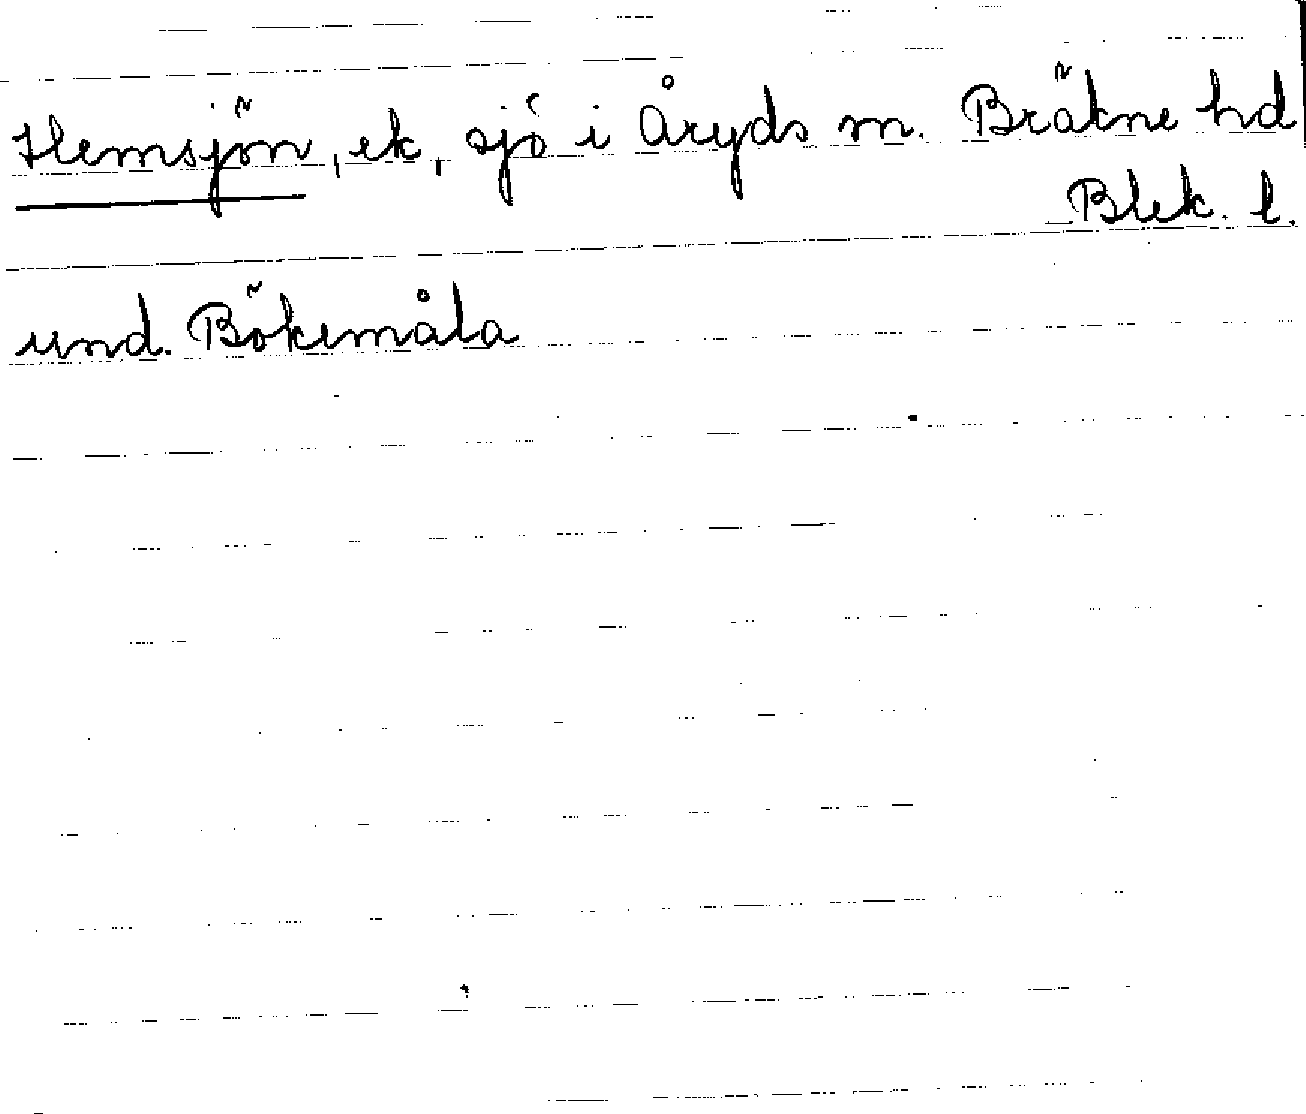 Hemsjön, ek, sjö i Åryds sn. Bräkne hd
Blek. l.
und. Bökemåla